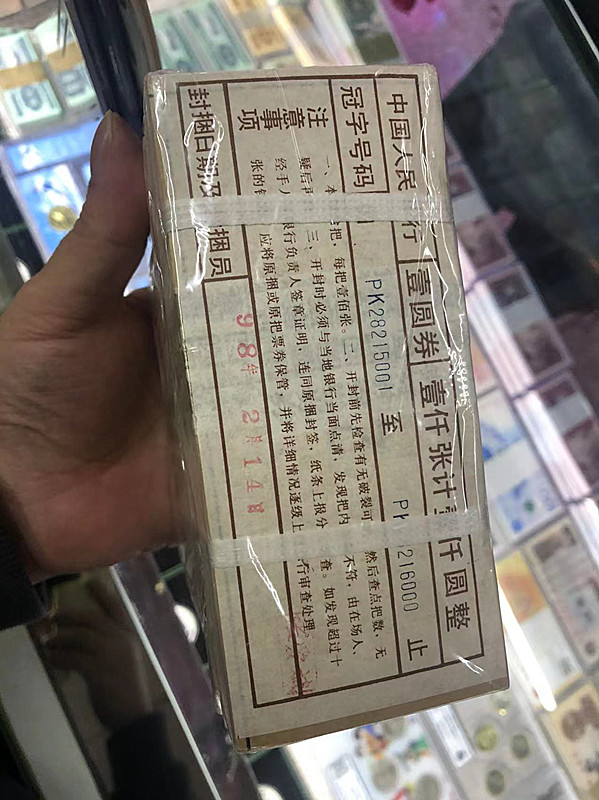 中国人民 行 壹圆券 壹仟张计 仟圆整
冠字号码 PK28215001 至 PK 216000 止
注意事项
一、本 把，每把壹佰张。二、开封前先检查有无破裂可 然后查点把数，无
疑后再 三、开封时必须与当地银行当面点清，发现把内 不符，由在场人、
经手人 银行负责人签章证明，连同原捆封签，纸条上报分 查。如发现超过十
张的 应将原捆或原把票券保管，并将详细情况逐级上 行审查处理
封捆日期及 捆员 98年 2月14日